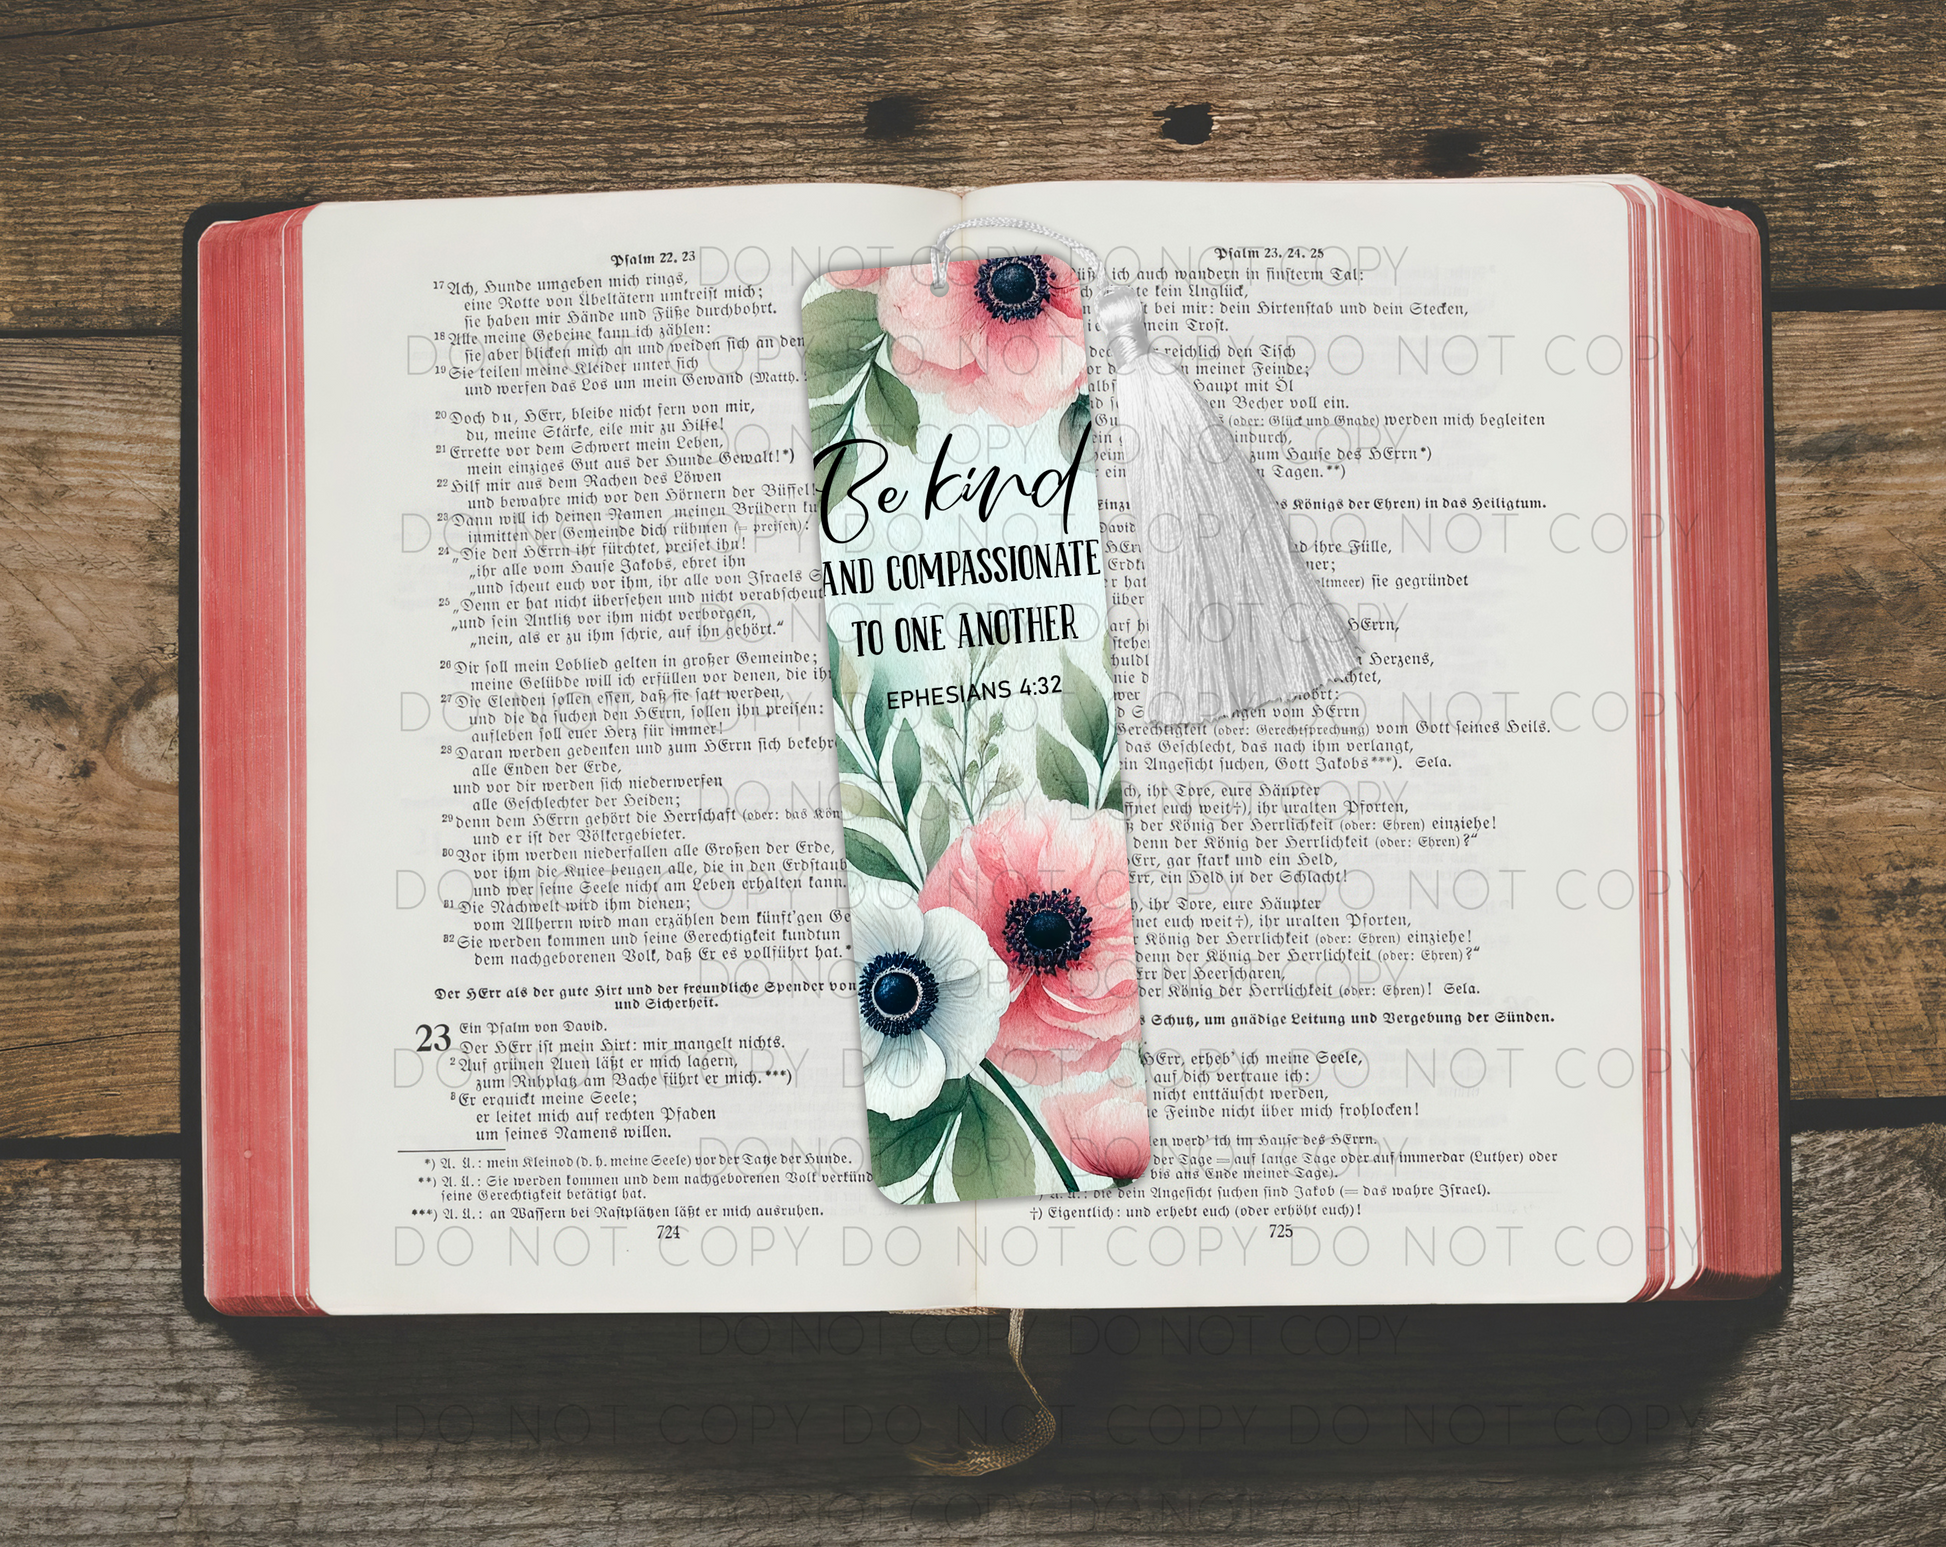 Psalm 22. 23
17 Ach, Hunde umgeben mich rings,
eine Rotte von Übeltätern umkreist mich;
sie haben mir Hände und Füße durchbohrt.
18 Alle meine Gebeine kann ich zählen:
sie aber blicken mich an und weiden sich an den
19 Sie teilen meine Kleider unter sich
und werfen das Los um mein Gewand (Matth.
20 Doch du, HErr, bleibe nicht fern von mir,
du, meine Stärke, eile mir zu Hilfe!
21 Errette vor dem Schwert mein Leben,
mein einziges Gut aus der Hunde Gewalt!*)
22 Hilf mir aus dem Rachen des Löwen
und bewahre mich vor den Hörnern der Büffel!
23 Dann will ich deinen Namen meinen Brüdern
inmitten der Gemeinde dich rühmen (= preisen):
24 „Die den HErrn ihr fürchtet, preiset ihn!
„ihr alle vom Hause Jakobs, ehret ihn
„und scheut euch vor ihm, ihr alle von Israels
25 „Denn er hat nicht übersehen und nicht verabscheut
„und sein Antlitz vor ihm nicht verborgen,
„nein, als er zu ihm schrie, auf ihn gehört.“
26 Dir soll mein Loblied gelten in großer Gemeinde;
meine Gelübde will ich erfüllen vor denen, die
27 Die Elenden sollen essen, daß sie satt werden,
und die da suchen den HErrn, sollen ihn preisen:
aufleben soll euer Herz für immer!
28 Daran werden gedenken und zum HErrn sich
alle Enden der Erde,
und vor dir werden sich niederwerfen
alle Geschlechter der Heiden;
29 denn dem HErrn gehört die Herrschaft (oder: das
und er ist der Völkergebieter.
30 Vor ihm werden niederfallen alle Großen der Erde,
vor ihm die Kniee beugen alle, die in den
und wer seine Seele nicht am Leben erhalten kann.
31 Die Nachwelt wird ihm dienen;
vom Allherrn wird man erzählen dem künft'gen
32 Sie werden kommen und seine Gerechtigkeit kundtun
dem nachgeborenen Volk, daß Er es vollführt hat.*
Der HErr als der gute Hirt und der freundliche Spender von
und Sicherheit.
23 Ein Psalm von David.
Der HErr ist mein Hirt: mir mangelt nichts.
2 Auf grünen Auen läßt er mich lagern,
zum Ruhplatz am Bache führt er mich.***)
3 Er erquickt meine Seele;
er leitet mich auf rechten Pfaden
um seines Namens willen.
*) A. Ü.: mein Kleinod (d. h. meine Seele) vor der Tatze der Hunde.
**) A. Ü.: Sie werden kommen und dem nachgeborenen Volk
seine Gerechtigkeit betätigt hat.
***) A. Ü.: an Wassern bei Rastplätzen läßt er mich ausruhen.
724
Be kind
AND COMPASSIONATE
TO ONE ANOTHER
EPHESIANS 4:32
Psalm 23. 24. 25
ich auch wandern in finsterm Tal:
kein Unglück,
bei mir: dein Hirtenstab und dein Stecken,
mein Trost.
reichlich den Tisch
meiner Feinde;
Haupt mit Öl
Becher voll ein.
(oder: Glück und Gnade) werden mich begleiten
zum Hause des HErrn*)
Tagen.**)
Königs der Ehren) in das Heiligtum.
David
ihre Fülle,
sie gegründet
über
HErrn,
Herzens,
vom HErrn
Gerechtigkeit (oder: Gerechtsprechung) vom Gott seines Heils.
das Geschlecht, das nach ihm verlangt,
Angesicht suchen, Gott Jakobs***). Sela.
ihr Tore, eure Häupter
euch weit†), ihr uralten Pforten,
der König der Herrlichkeit (oder: Ehren) einziehe!
denn der König der Herrlichkeit (oder: Ehren)?“
gar stark und ein Held,
ein Held in der Schlacht!
ihr Tore, eure Häupter
euch weit†), ihr uralten Pforten,
König der Herrlichkeit (oder: Ehren) einziehe!
denn der König der Herrlichkeit (oder: Ehren)?“
der Heerscharen,
der König der Herrlichkeit (oder: Ehren)! Sela.
Schutz, um gnädige Leitung und Vergebung der Sünden.
HErr, erheb' ich meine Seele,
auf dich vertraue ich:
nicht enttäuscht werden,
Feinde nicht über mich frohlocken!
werd' ich im Hause des HErrn.
der Tage = auf lange Tage oder auf immerdar (Luther) oder
bis ans Ende meiner Tage).
die dein Angesicht suchen sind Jakob (= das wahre Israel).
†) Eigentlich: und erhebt euch (oder erhöht euch)!
725
DO NOT COPY DO NOT COPY
DO NOT COPY DO NOT COPY DO NOT COPY
DO NOT COPY DO NOT COPY
DO NOT COPY DO NOT COPY DO NOT COPY
DO NOT COPY DO NOT COPY
DO NOT COPY DO NOT COPY DO NOT COPY
DO NOT COPY DO NOT COPY
DO NOT COPY DO NOT COPY DO NOT COPY
DO NOT COPY DO NOT COPY
DO NOT COPY DO NOT COPY DO NOT COPY
DO NOT COPY DO NOT COPY
DO NOT COPY DO NOT COPY DO NOT COPY
DO NOT COPY DO NOT COPY
DO NOT COPY DO NOT COPY DO NOT COPY
DO NOT COPY DO NOT COPY